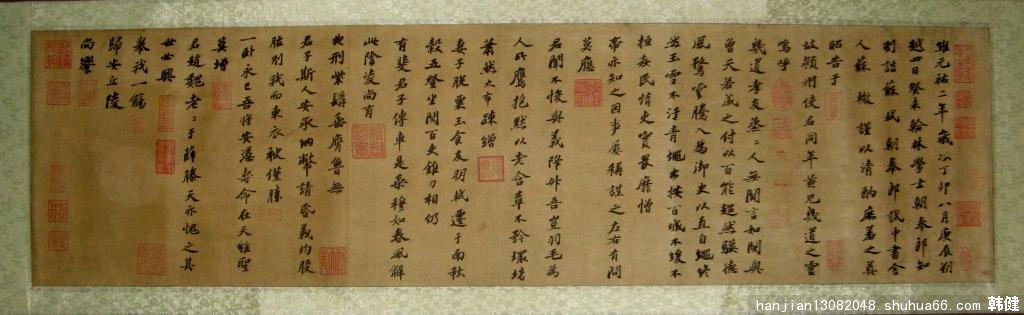 維元祐二年歲次丁卯八月庚辰朔
越四日癸未翰林學士朝奉郎知
制誥蘇軾朝奉郎試中書舍
人蘇轍謹以清酌庶羞之奠
昭告于
故潁州使君同年黃兄幾道之靈
嗚呼
幾道孝友烝烝人無閒言如閔與
曾天若成之付以百能超然驥德
風騖雲騰入為御史以直自繩
然玉雪不汙青蠅出按百城不緩不
拒民惰吏實畏靡憎
帝亦知之因事屢稱謀之左右有問
莫應
君聞不悛與義降升吾豈羽毛為
人所鷹抱默以老含章不矜環堵
蕭然大布疎繒
妻子脫粟玉食友朋軾遷于南秋
穀五登坐閱百吏錐刀相仍
有斐君子傳車是乘穆如春風解
此陰淩尚有
典刑紫髯垂膺魯無
君子斯人安承納幣請昏義均股
肱別我而東衣袂僅勝
一臥永已吾將安憑壽命在天雖聖
莫增
君趙魏老老于薛滕天亦愧之其
世必興
舉我一觴
歸安丘陵
尚饗
hanjian13082048.shuhua66.com 韩健